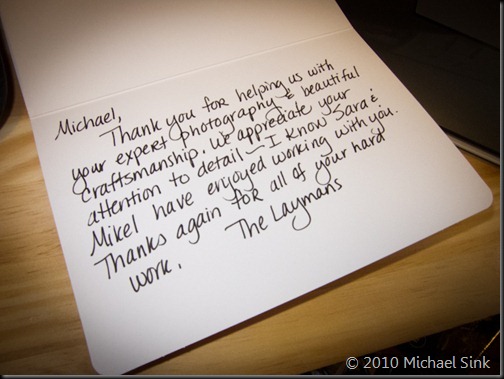 Michael,
Thank you for helping us with
your expert photography & beautiful
craftsmanship. We appreciate your
attention to detail - I know Sara &
Mikel have enjoyed working with you.
Thanks again for all of your hard
work.
The Laymans
© 2010 Michael Sink